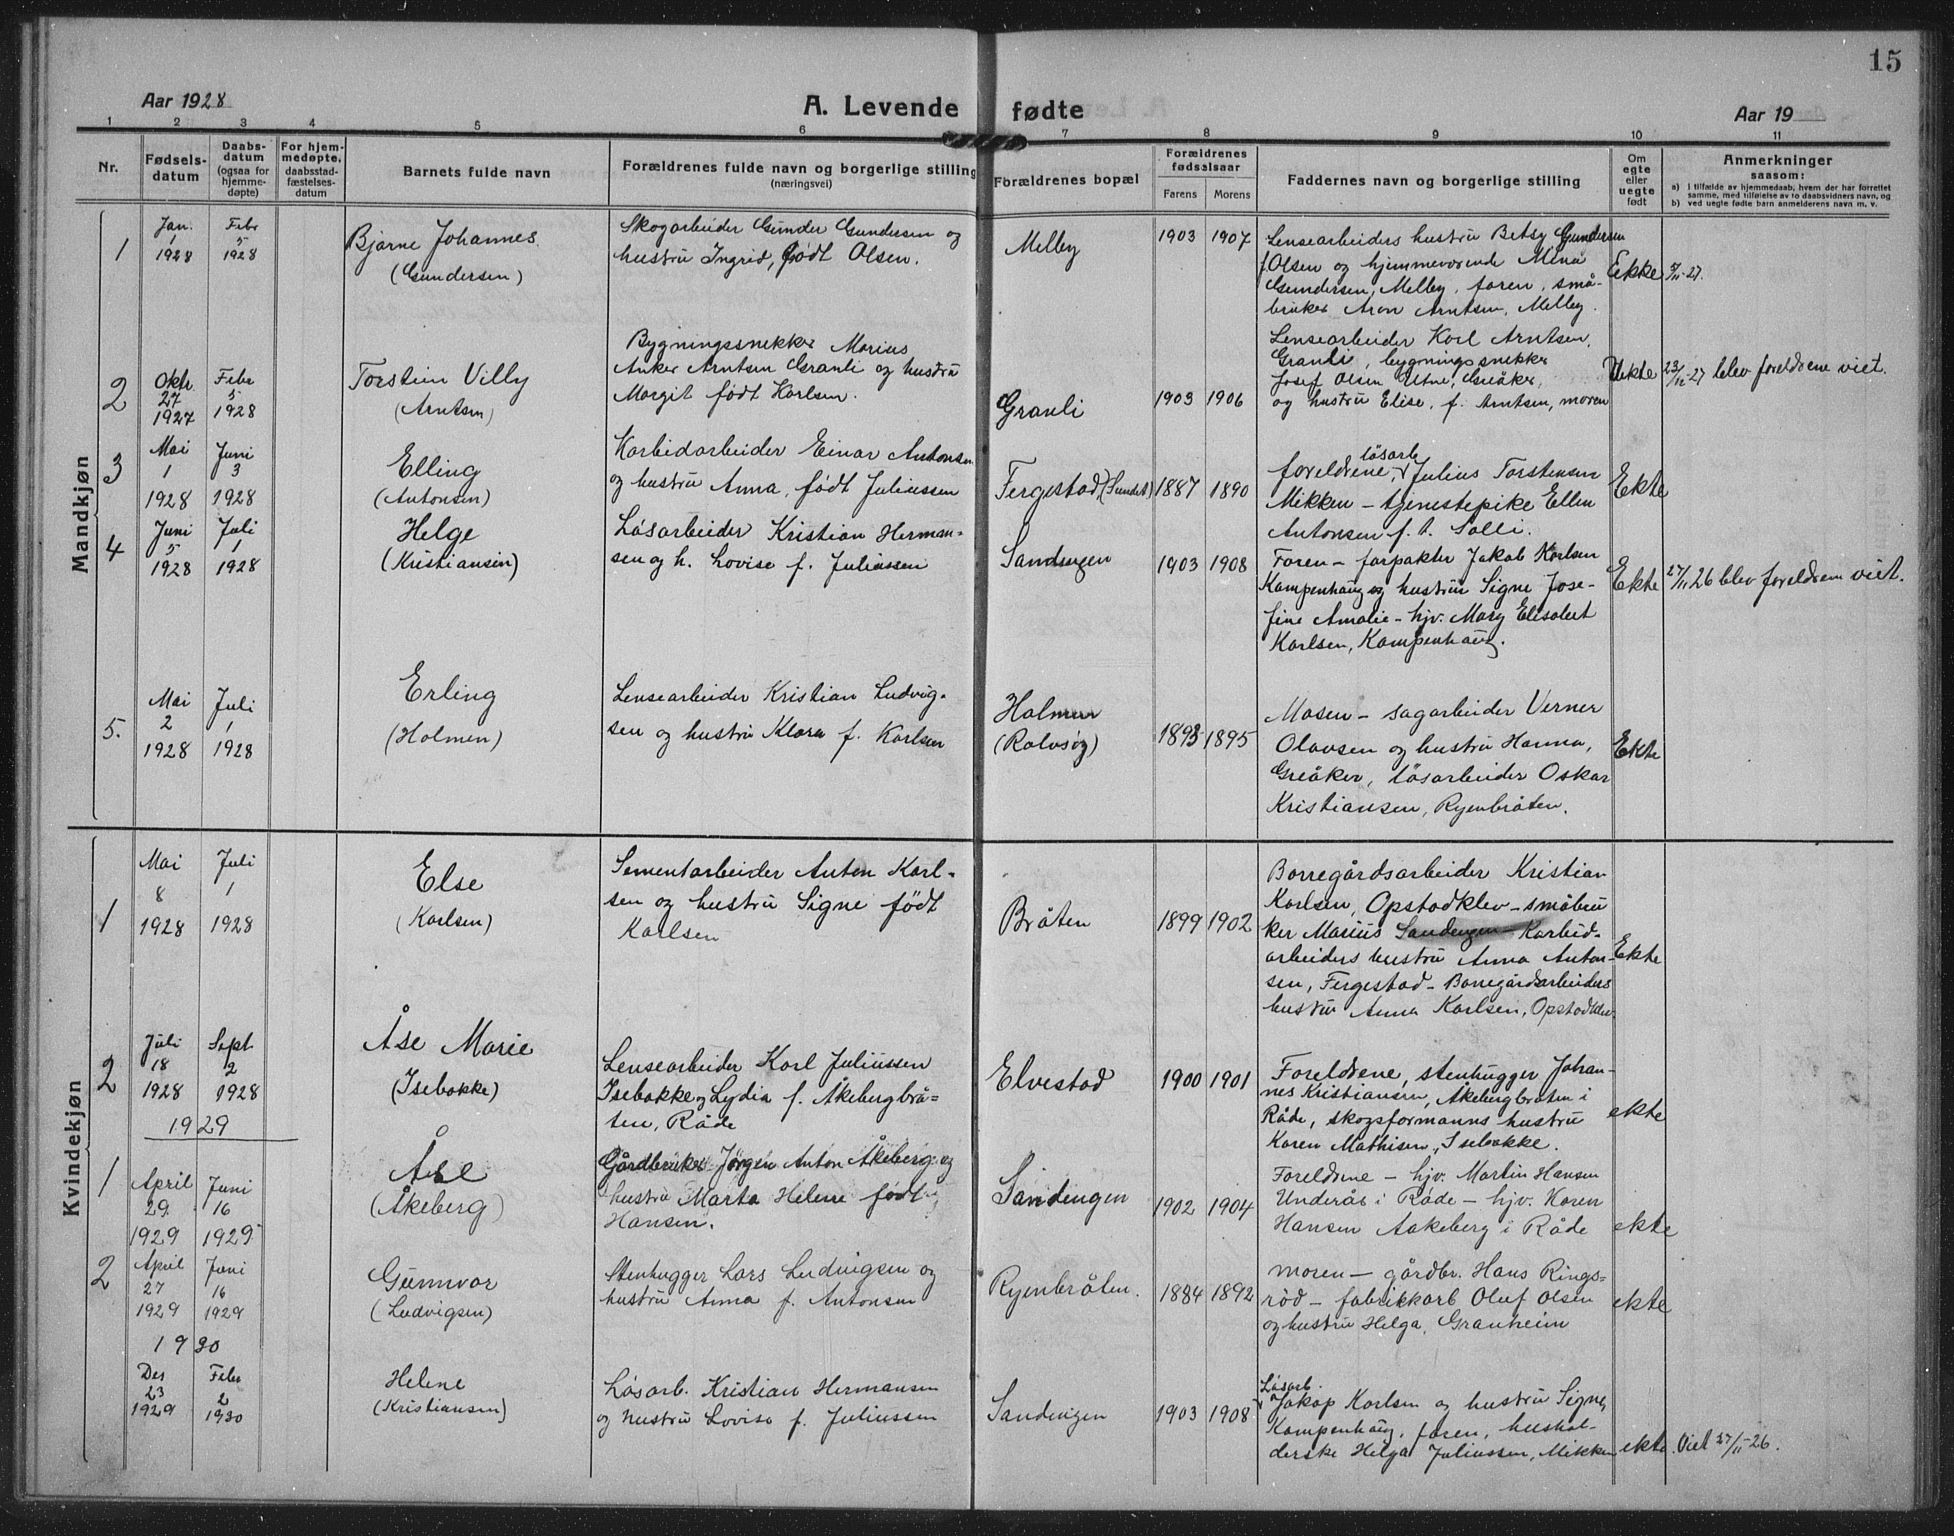 15
Aar 1928
A. Levende fødte
Aar 19
1 2 3 4 5 6 7 8 9 10 11
Nr.
Fødsels-
datum
Daabs-
datum
(ogsaa for
hjemme-
døpte)
For hjem-
medøpte,
daabsstad-
fæstelses-
datum
Barnets fulde navn
Forældrenes fulde navn og borgerlige stilling
(næringsvei)
Forældrenes bopæl
Forældrenes
fødselsaar
Farens Morens
Faddernes navn og borgerlige stilling
Om
egte
eller
uegte
født
Anmerkninger
saasom:
a) i tilfælde av hjemmedaab, hvem der har forrettet
samme, med tilføielse av to daabsvidners navn, og
b) ved uegte fødte barn anmelderens navn m. v.
Mandkjøn
1
Jan.
1
1928
Febr
5
1928
Bjarne Johannes
(Gundersen)
Skogarbeider Gunder Gundersen og
hustru Ingrid, født Olsen.
Melby
1903 1907
Lensearbeiders hustru Betsy Gundersen
f. Olsen og hjemmeværende Mina
Gundersen, Melby, faren, små-
bruker Aron Arntsen, Melby.
Ekte
5/11-27.
2
Okt.
27
1927
Febr
5
1928
Torstein Villy
(Arntsen)
Bygningssnekker Marius
Anker Arntsen Granli og hustru
Margit født Karlsen.
Granli
1903 1906
Lensearbeider Karl Arntsen,
Granli, bygningssnekker
Josef Olsen Utne, Greåker,
og hustru Elise, f. Arntsen, moren
Uekte
23/12-27 blev foreldrene viet.
3
Mai
1
1928
Juni
3
1928
Elling
(Antonsen)
Karbidarbeider Einar Antonsen
og hustru Anna, født Juliussen
Fergestad (Sundet)
1887 1890
løsarb
foreldrene, Julius Torstensen
Mikken – tjenestepike Ellen
Antonsen f. t. Solli.
Ekte
4
Juni
5
1928
Juli
1
1928
Helge
(Kristiansen)
Løsarbeider Kristian Herman-
sen og h. Lovise f. Juliussen
Sandengen
1903 1908
Faren – forpakter Jakob Karlsen
Kampenhaug og hustru Signe Jose-
fine Amalie – hjv. Mary Elisabet
Karlsen, Kampenhaug.
Ekte
27/11 26 blev foreldrene viet.
5.
Mai
2
1928
Juli
1
1928
Erling
(Holmen)
Lensearbeider Kristian Ludvig-
sen og hustru Klara f. Karlsen
Holmen
(Rolvsøy)
1893 1895
Moren – sagarbeider Verner
Olavsen og hustru Hanna,
Greåker, løsarbeider Oskar
Kristiansen, Ryenbråten.
Ekte
Kvindekjøn
1
Mai
8
1928
Juli
1
1928
Else
(Karlsen)
Sementarbeider Anton Karl-
sen og hustru Signe født
Karlsen
Bråten
1899 1902
Borregårdsarbeider Kristian
Karlsen, Opstadklev – småbru
ker Marius Sandengen – Karbid-
arbeiders hustru Anna Anton-
sen, Fergestad – Borregårdsarbeiders
hustru Anna Karlsen, Opstadklev.
Ekte
2
Juli
18
1928
Sept.
2
1928
Åse Marie
(Isebakke)
Lensearbeider Karl Juliussen
Isebakke og Lydia f. Åkebergbrå-
ten, Råde
Elvestad
1900 1901
Foreldrene, stenhugger Johan-
nes Kristiansen, Åkebergbråten i
Råde, skogsformanns hustru
Karen Mathisen, Isebakke.
ekte
1929
1
April
29
1929
Juni
16
1929
Åse
(Åkeberg)
Gårdbruker Jørgen Anton Åkeberg og
hustru Marta Helene født
Hansen.
Sandengen
1902 1904
Foreldrene – hjv. Martin Hansen
Underås i Råde – hjv. Karen
Hansen Aakeberg i Råde
ekte
2
April
27
1929
Juni
16
1929
Gunnvor
(Ludvigsen)
Stenhugger Lars Ludvigsen og
hustru Anna f. Antonsen
Ryenbråten.
1884 1892
moren – gårdbr. Hans Rings-
rød – fabrikkarb Oluf Olsen
og hustru Helga, Granheim
ekte
1930
Des
23
1929
Febr
2
1930
Helene
(Kristiansen)
Løsarb. Kristian Hermansen
og hustru Lovise f. Juliussen
Sandengen
1903 1908
Løsarb.
Jakop Karlsen og hustru Signe,
Kampenhaug, faren, hushol-
derske Helga Juliussen, Mikken
ekte
Viet 27/11-26.